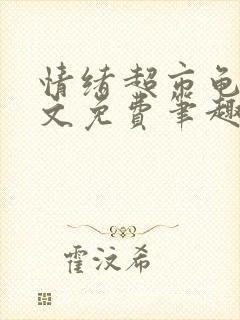 情绪超市龟
文免费笔趣
霍汶希